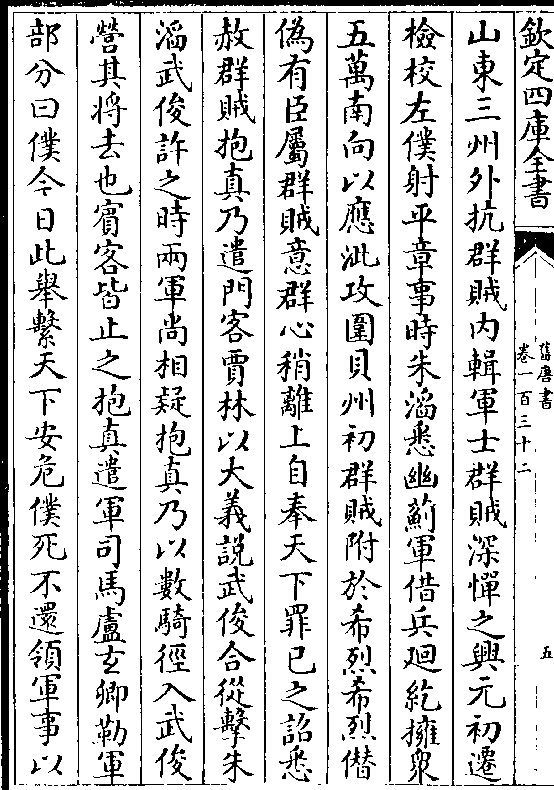 欽定四庫全書
舊唐書
卷一百三十二
五
山東三州外抗群賊内輯軍士群賊深憚之興元初遷
檢校左僕射平章事時朱滔悉幽薊軍借兵廻紇擁衆
五萬南向以應泚攻圍貝州初群賊附於希烈希烈僭
偽有臣屬群賊意群心稍離上自奉天下罪已之詔悉
赦群賊抱真乃遣門客賈林以大義説武俊合從擊朱
滔武俊許之時兩軍尚相疑抱真乃以數騎徑入武俊
營其将去也賓客皆止之抱真遣軍司馬盧玄卿勒軍
部分曰僕今日此舉繫天下安危僕死不還領軍事以